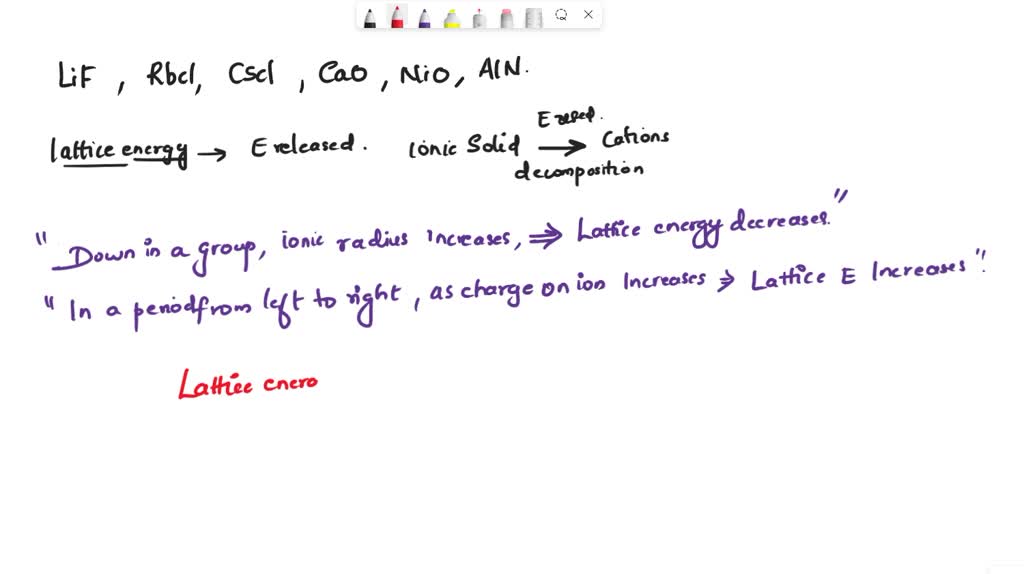 LiF, Rbcl, Cscl, Cao, Nio, AlN.
lattice energy → E released. Ionic Solid → Cations
decomposition
"Down in a group, ionic radius increases, ⇒ Lattice energy decreases."
"In a period from left to right, as charge on ion Increases ⇒ Lattice E Increases".
Lattice